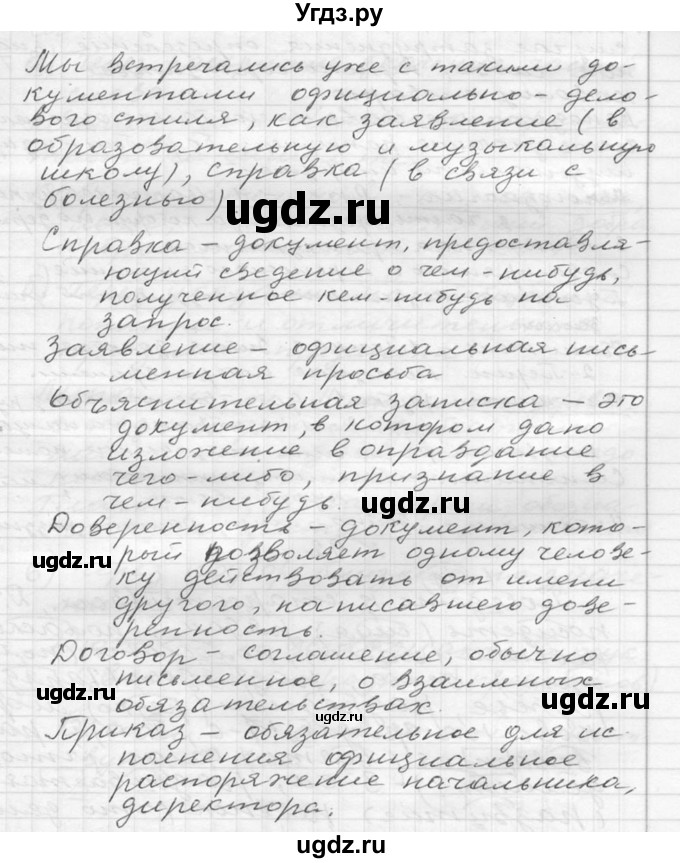 Угдз.ру
Мы встречались уже с такими до-
кументами официально-дело-
вого стиля, как заявление (в
образовательную и музыкальную
школу), справка (в связи с
болезнью)
ugdz.ru
Справка – документ, предоставля-
ющий сведение о чем-нибудь,
полученное кем-нибудь по
запрос.
Заявление – официальная пись-
менная просьба
Объяснительная записка – это
документ, в котором дано
изложение в оправдание
чего-либо, признание в
чем-нибудь.
ugdz.ru
Доверенность – документ, кото-
ugdz.ru
рый позволяет одному челове-
ку действовать от имени
другого, написавшего дове-
ренность.
Договор – соглашение, обычно
письменное, о взаимных
ugdz.ru
обязательствах.
ugdz.ru
Приказ – обязательное для ис
полнения официальное
распоряжение начальника,
директора.
ugdz.ru